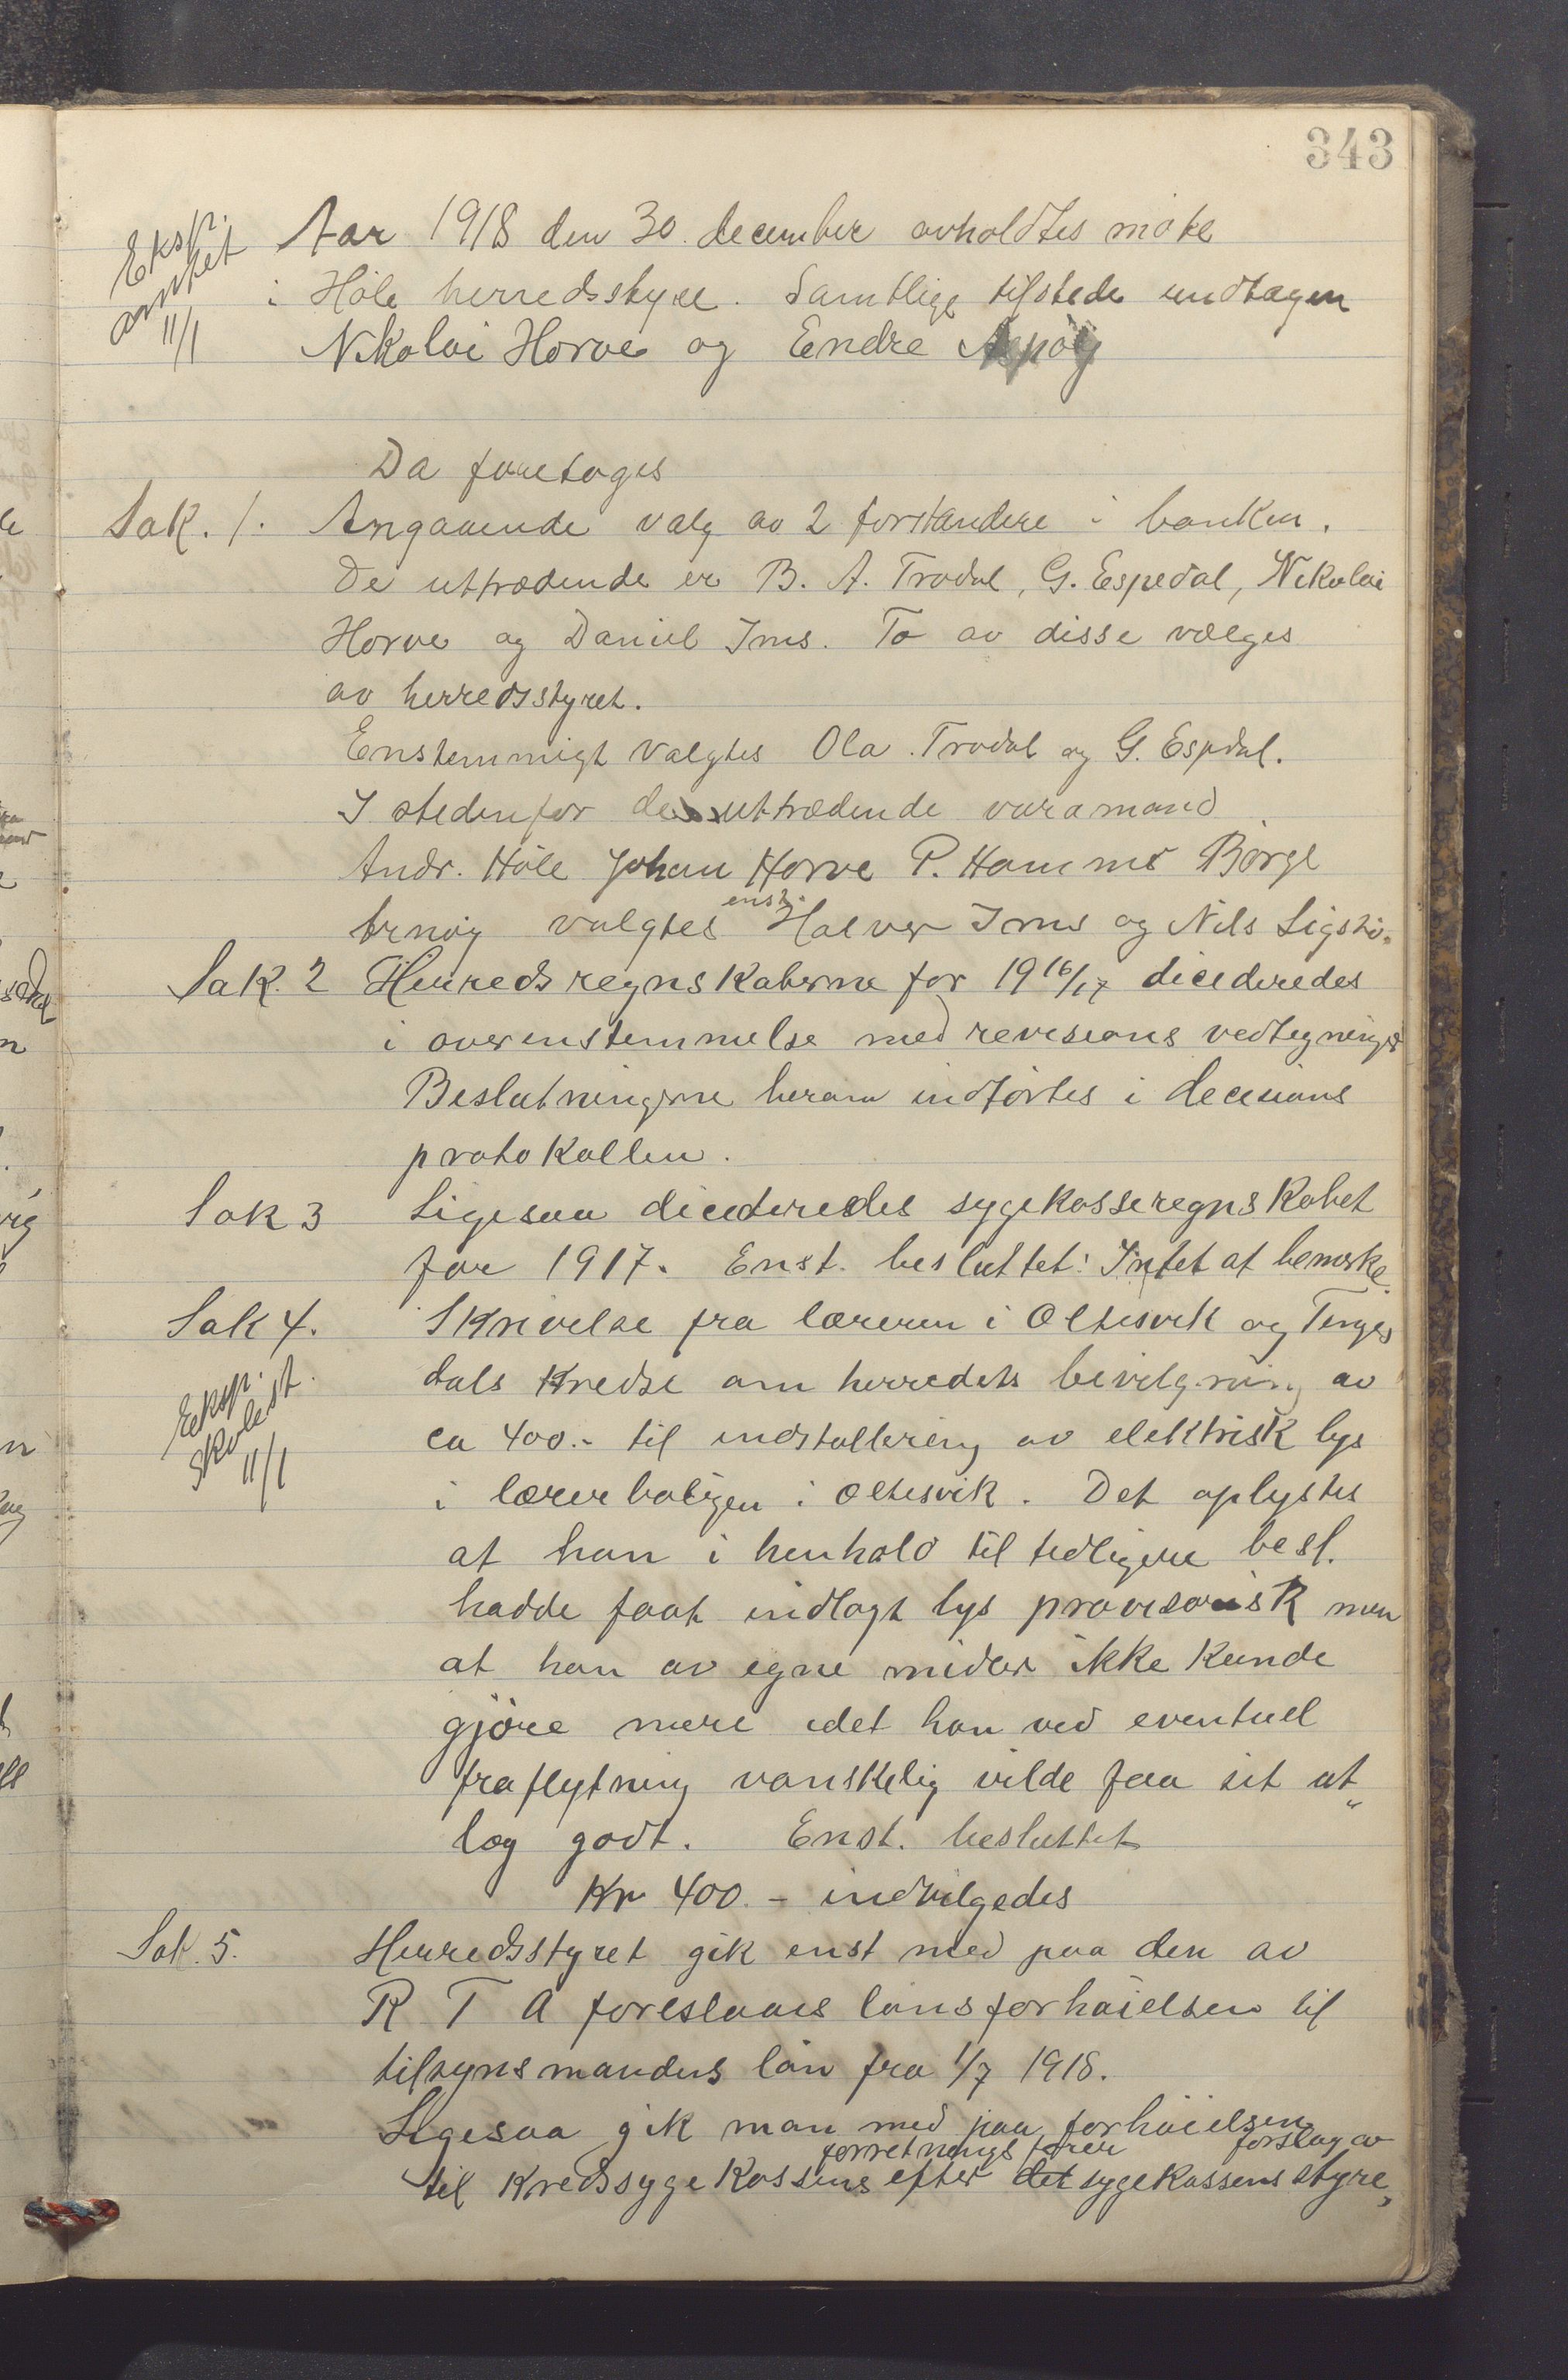 343
Eksp.
11/1
Aar 1918 den 30. december avholdtes møte
i Höle herredsstyre. Samtlige tilstede undtagen
Nikolai Horve og Endre
Da foretoges
Sak. 1. Angaaende valg av 2 forstandere i banken.
De uttrædende er B. A. Trodal, G. Espedal, Nikolai
Horve og Daniel Ims. To av disse vælges
av herredsstyret.
Enstemmigt valgtes Ola Trodal og G. Espdal.
I stedenfor de uttrædende varamænd
Andr. Höle Johan Horve P. Hommo Börge
valgtes enst. Halver Ims og Nils
Sak. 2 Herredsregnskaberne for 1916/17 dicideredes
i overenstemmelse med revisions vedtegninger
Beslutningerne herom indförtes i decisions
protokollen.
Sak 3 Ligesaa dicideredes sygekasseregnskabet
for 1917. Enst. besluttet: Intet at bemerke.
Sak 4. Skrivelse fra læreren i Oltesvik og Tenges
dals Kredse om herredets bevilgning av
Eksp.
skolest.
11/1
ca 400.- til indstallering av elektrisk lys
i lærerboligen i Oltesvik. Det oplystes
at han i henhold til tidligere besl.
hadde faat indlagt lys provisorisk men
at han av egne midler ikke kunde
gjöre mere idet han ved eventuel
fraflytning vanskelig vilde faa sit ut„
læg godt. Enst. besluttet
Kr 400.- indvilgedes
Sak. 5. Herredsstyret gik enst med paa den av
R T A foreslaaes lönsforhöielsen til
tilsynsmandens lön fra 1/7 1918.
Ligesaa gik man med paa forhöielsen
forretningsförer forslag av
til Kredssygekassens efter det sygekassens styre,